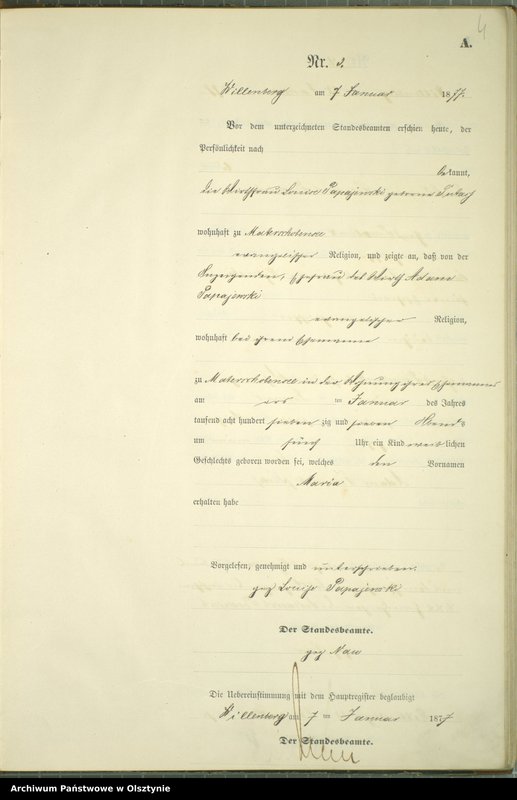 4
A.
Nr. 3.
Willenberg am 7 Januar 1877.
Vor dem unterzeichneten Standesbeamten erschien heute, der
Persönlichkeit nach
bekannt,
die Wirthsfrau Louise Papajewski geborene
wohnhaft zu Materschobensee
evangelischer Religion, und zeigte an, daß von der
Anzeigenden, Ehefrau des Wirth Adam
Papajewski
evangelischer Religion,
wohnhaft bei ihrem Ehemanne
zu Materschobensee in der Wohnung ihres Ehemannes
am ten Januar des Jahres
tausend acht hundert sieben zig und sieben Abends
um fünf Uhr ein Kind weiblichen
Geschlechts geboren worden sei, welches den Vornamen
Maria
erhalten habe
Vorgelesen, genehmigt und unterschrieben.
gez Louise Papajewski
Der Standesbeamte.
gez
Die Uebereinstimmung mit dem Hauptregister beglaubigt
Willenberg am 7 ten Januar 1877
Der Standesbeamte.
Archiwum Państwowe w Olsztynie